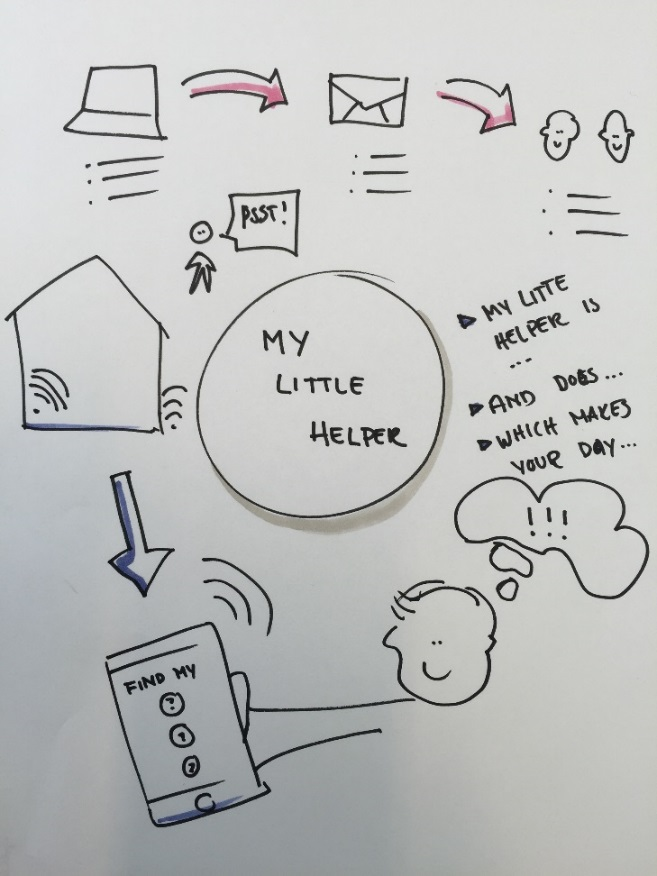 PSST!
MY
LITTLE
HELPER
MY LITTE
HELPER IS
...
AND DOES...
WHICH MAKES
YOUR DAY...
!!!
FIND MY
?
?
?